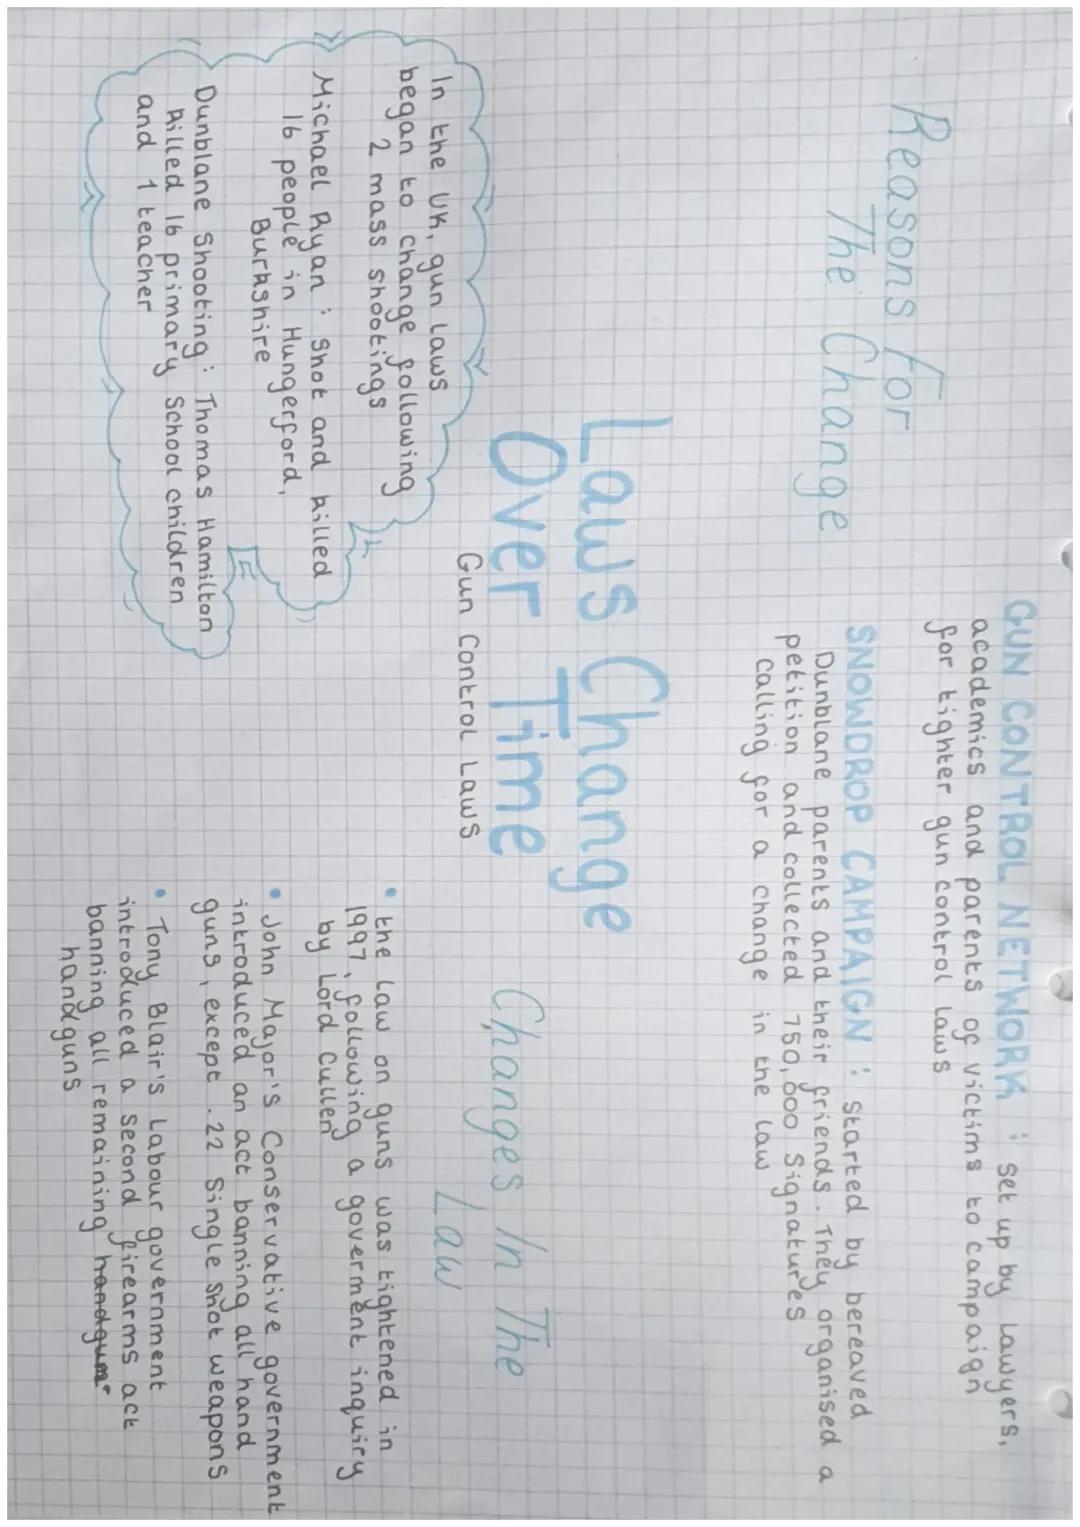 Reasons for
The Change
GUN CONTROL NETWORK : Set up by Lawyers,
academics and parents of victims to campaign
for tighter gun control laws
SNOWDROP CAMPAIGN : Started by bereaved
Dunblane parents and their friends. They organised a
petition and collected 750,000 Signatures
calling for a change in the law
Laws Change
Over Time
Gun Control Laws
In the UK, gun laws
began to change following
2 mass shootings
Michael Ryan : Shot and killed
16 people in Hungerford,
Burkshire
Dunblane Shooting : Thomas Hamilton
killed 16 primary School children
and 1 teacher
Changes In The
Law
• the law on guns was tightened in
1997, following a goverment inquiry
by Lord Cullen
• John Major's Conservative government
introduced an act banning all hand
guns, except .22 Single Shot weapons
• Tony Blair's Labour government
introduced a second firearms act
banning all remaining handgun
handguns